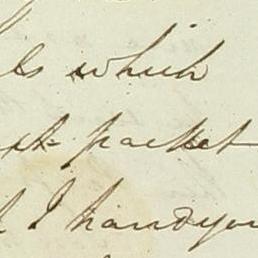 which
packet
I hand you